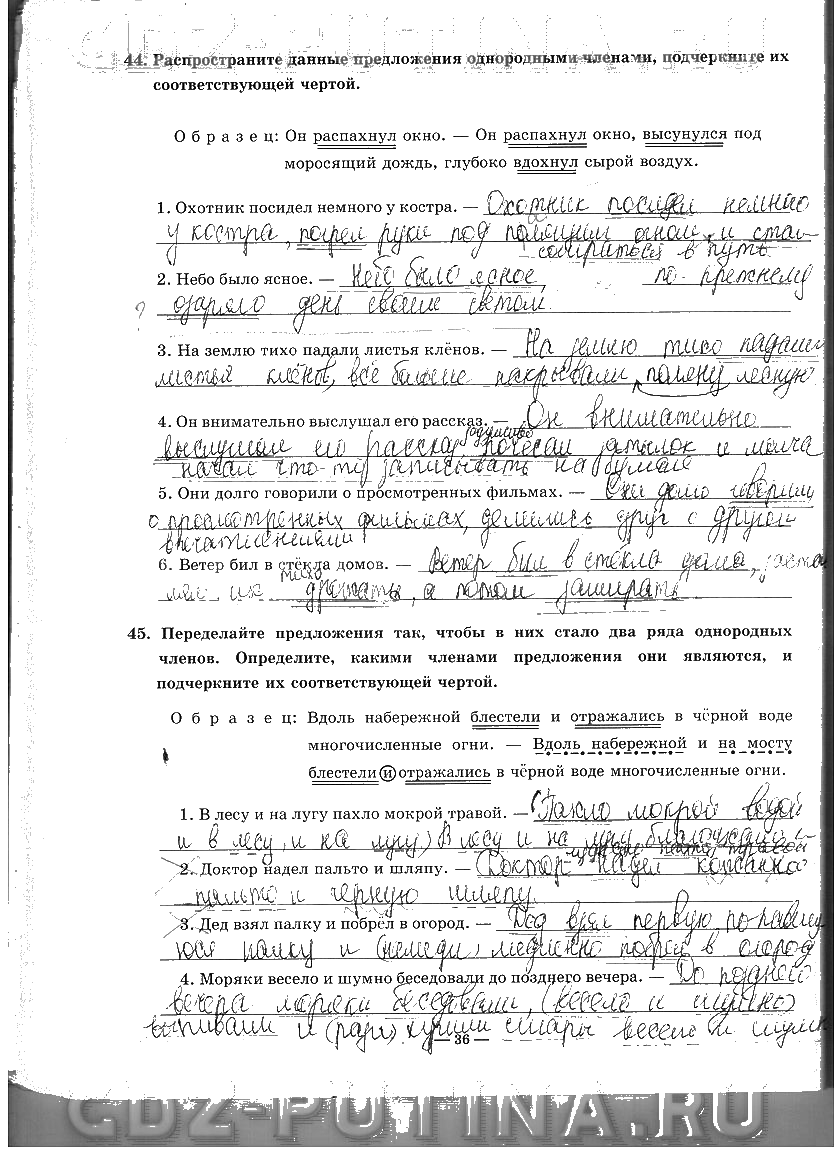 GDZ-PUTINA.RU
44. Распространите данные предложения однородными членами, подчеркните их
соответствующей чертой.
О б р а з е ц: Он распахнул окно. — Он распахнул окно, высунулся под
моросящий дождь, глубоко вдохнул сырой воздух.
1. Охотник посидел немного у костра. — Охотник посидел немного
у костра, погрел руки под огном и стал
собираться в путь
2. Небо было ясное. — Небо было ясное, по-прежнему
? озаряло день своим светом
3. На землю тихо падали листья клёнов. — На землю тихо падали
листья клёнов, всё больше покрывали поляну лесную
4. Он внимательно выслушал его рассказ. — Он внимательно
выслушал его рассказ, почесал затылок и молча
начал что-то записывать на бумаге
5. Они долго говорили о просмотренных фильмах. — Они долго говорили
о просмотренных фильмах, делились друг с другом
впечатлениями
6. Ветер бил в стёкла домов. — Ветер бил в стёкла дома,
их тихо дрожать, а потом замирать
45. Переделайте предложения так, чтобы в них стало два ряда однородных
членов. Определите, какими членами предложения они являются, и
подчеркните их соответствующей чертой.
О б р а з е ц: Вдоль набережной блестели и отражались в чёрной воде
многочисленные огни. — Вдоль набережной и на мосту
блестели и отражались в чёрной воде многочисленные огни.
1. В лесу и на лугу пахло мокрой травой. — (Пахло мокрой водой
и в лесу, и на лугу) В лесу и на лугу
2. Доктор надел пальто и шляпу. — Доктор надел
пальто и черную шляпу.
3. Дед взял палку и побрёл в огород. — Дед взял первую
палку и медленно побрел в огород
4. Моряки весело и шумно беседовали до позднего вечера. — До позднего
вечера моряки беседовали, (весело и шумно)
выпивали и весело и шумно
— 36 —
GDZ-PUTINA.RU